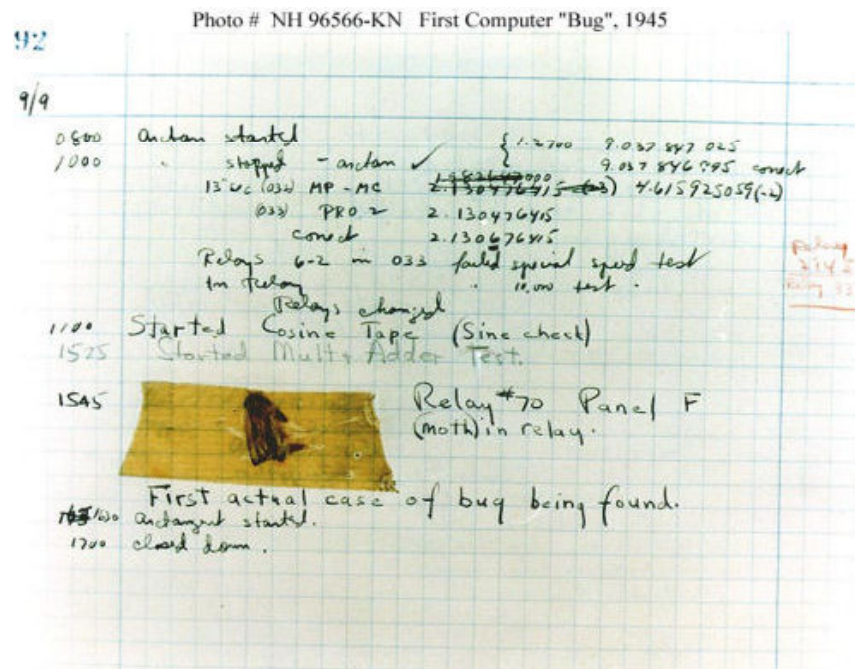 Photo # NH 96566-KN First Computer "Bug", 1945
92
9/9
0800 Antan started { 1.2700 9.037 847 025
1000 " stopped - antan ✓ 9.037 846 995 conect
13"uc (032) MP - MC 2.130476415 (-3) 4.615925059(-2)
(033) PRO 2 2.130476415
conect 2.130676415
Relays 6-2 in 033 failed special speed test
in relay " 10.000 test .
Relays changed
1100 Started Cosine Tape (Sine check)
1525 Started Mult + Adder Test.
1545 Relay #70 Panel F
(moth) in relay.
First actual case of bug being found.
1630 antangent started.
1700 closed down.
Relay
Relay